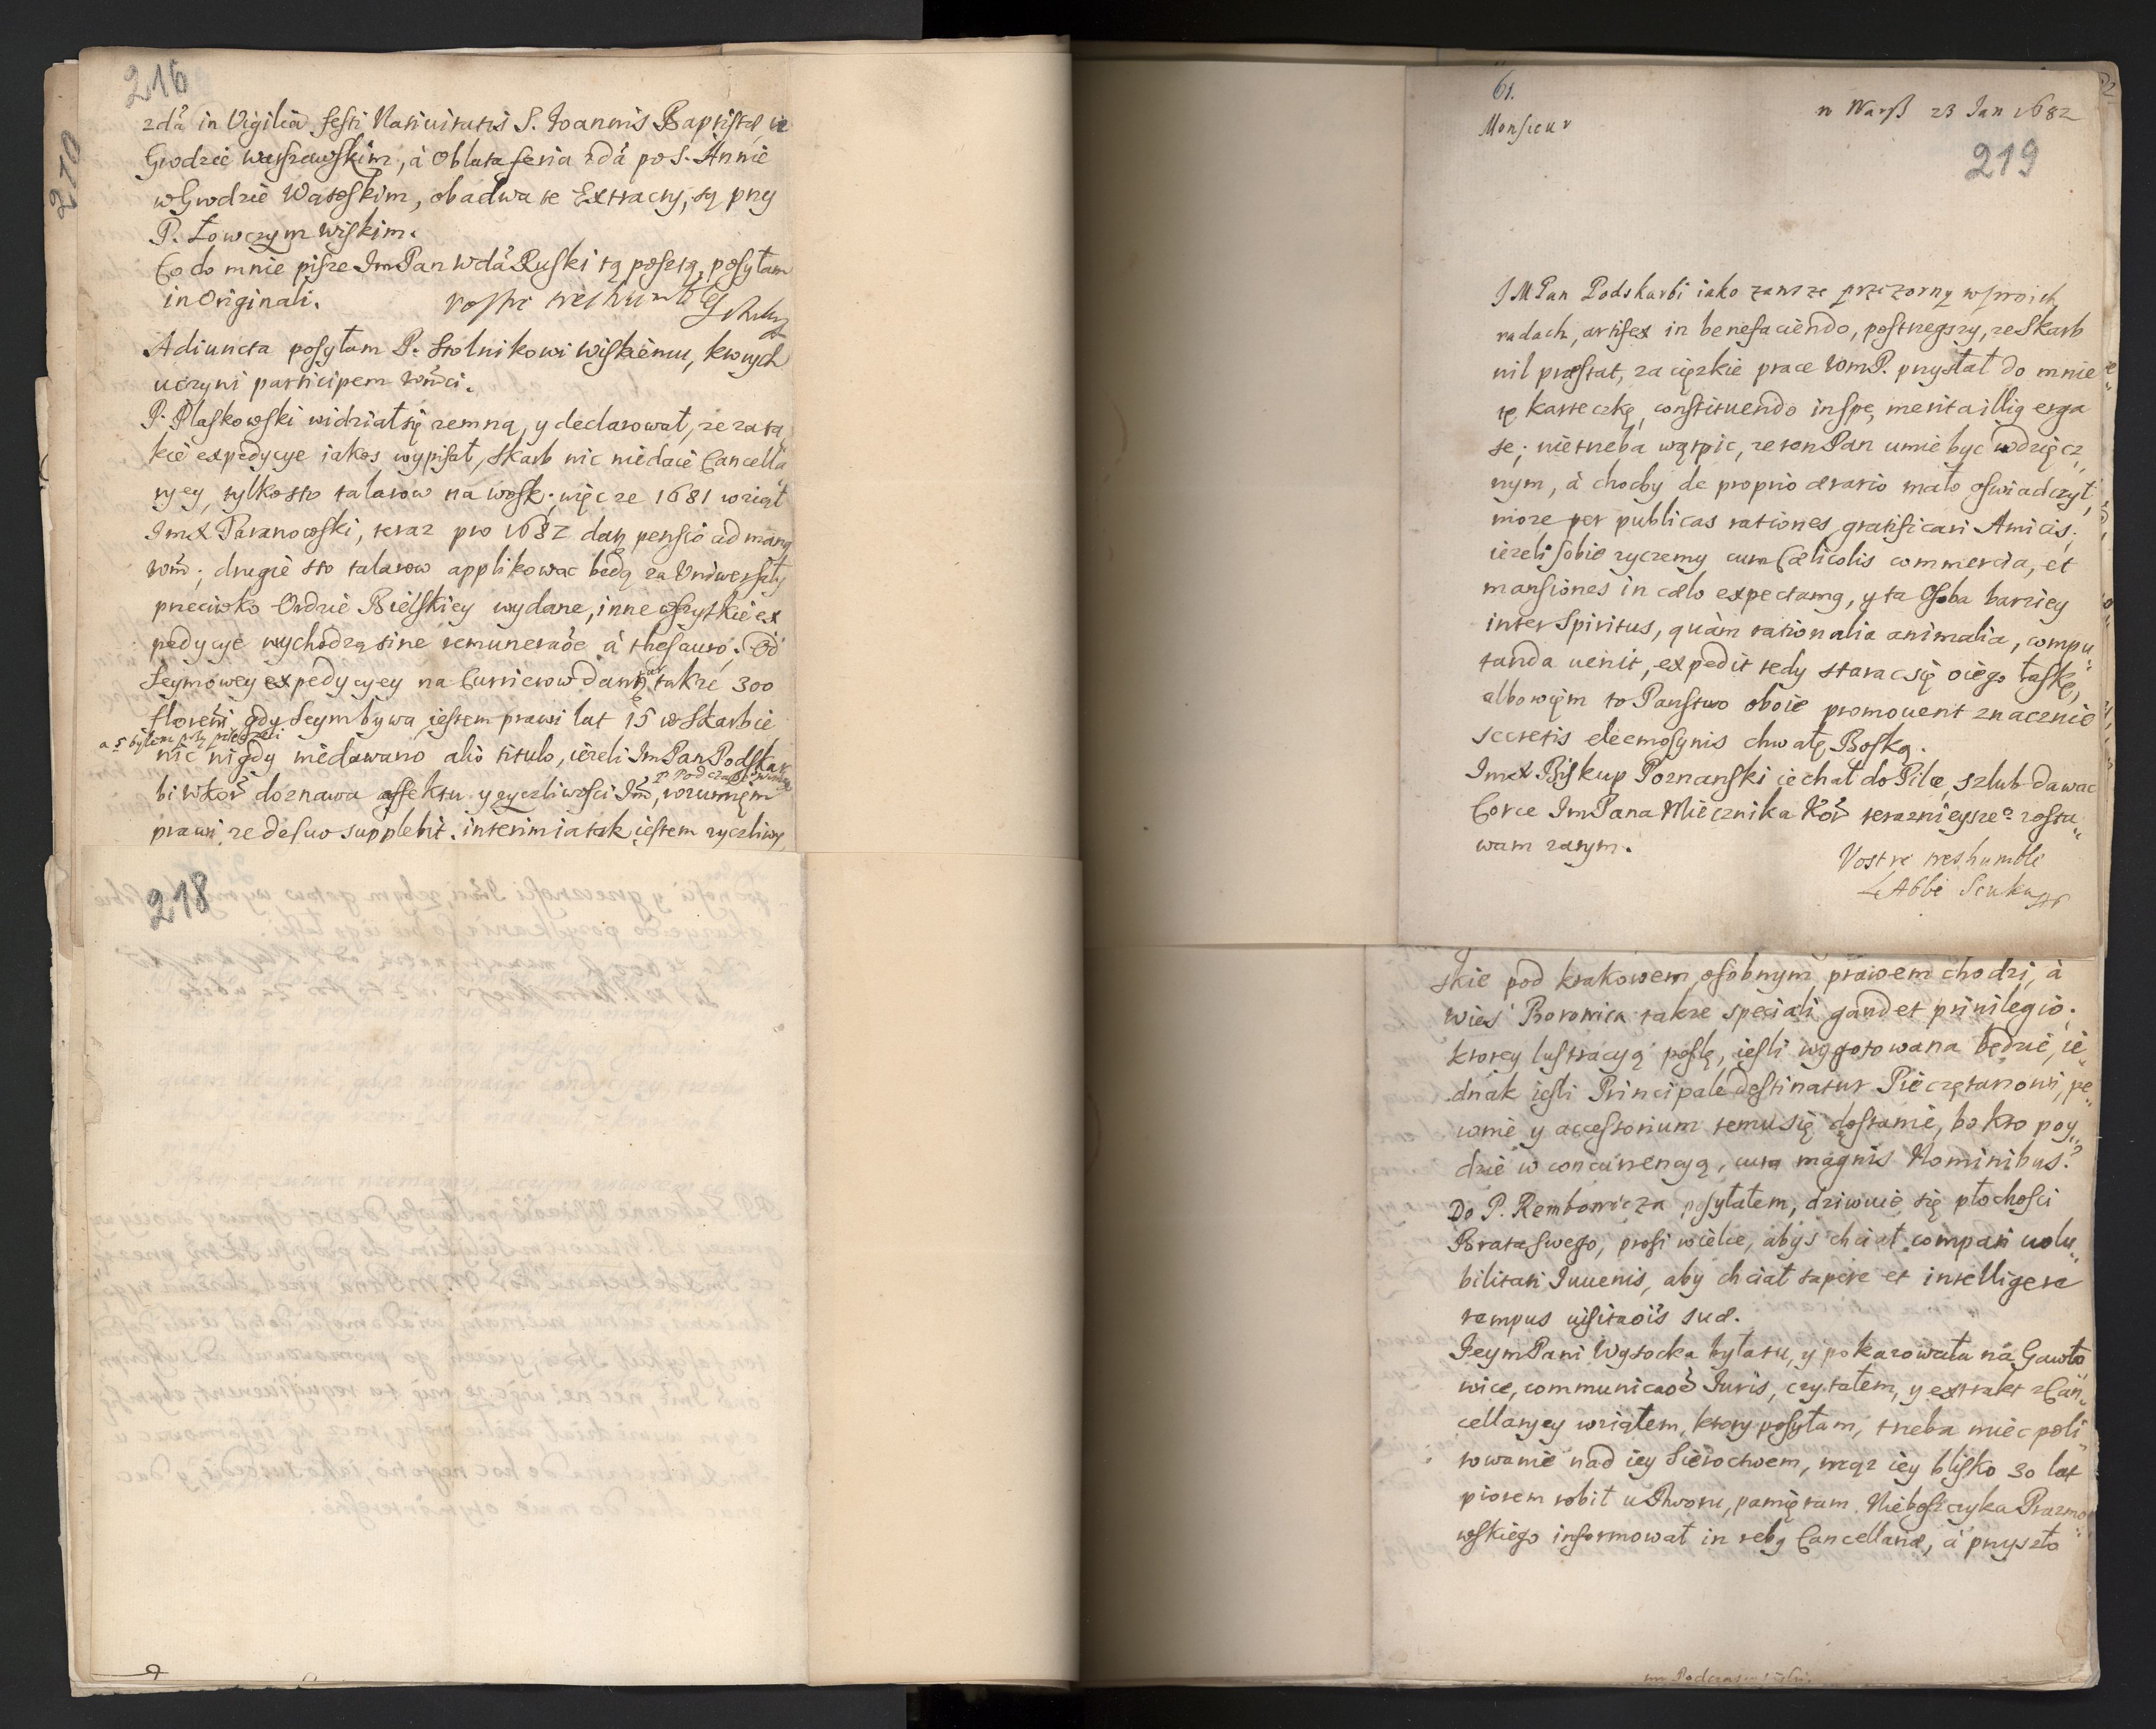 216
2da in Vigilia festi Natiuitatis S. Joannis Baptistæ w
Grodzie warszawskim, à Oblata feria 2dâ po S. Annie
w Grodzie Wąsoskim, obadwa te Extracty, są przy
P. Łowczym wiskim.
Co do mnie pisze ImPan Wdâ Ruski tą posztą, posyłam
in Originali. vostre treshumble
Adiuncta posyłam P. Stolnikowi wiskiemu, ktorych
uczyni participem
P. Płaskowski widział się zemną, y declarował, ze za ta
kie expedycye iakes wypisał, skarb nic niedaie Cancella
ryey, tylko sto talarow na wosk; więc ze 1681 wziął
ImX Baranowski, teraz pro 1682 dadzą pensio ad manq
drugie sto talarow applikowac będą za Uniwersały
przeciwko Ordzie Bielskiey wydane, inne wszytkie ex
pedycye wychodzą sine remuneraõe à thesauro; Od
Seymowey expedycyey na Currierow daią takze 300
floreni, gdy Seym bywa, iestem prawi lat 15 w skarbie
nic nigdy niedawano aliò titulo, iezeli ImPan Podskar
bi doznawa affektu y zyczliwosci Im, rozumięm
prawi ze de suo supplebit. interim ia tak iestem zyczliwy
218
61.
w Warß 23 Jan 1682
Monsieur
219
JMPan Podskarbi iako zawsze przezorny w swoich
radach, artifex in benefaciendo, postrzegszy, ze skarb
nil præstat, za cięzkie prace przysłał do mnie
tę karteczkę, constituendo in spe, merita illiq erga
se; nietrzeba wątpic, ze ten Pan umie byc wdzięcz„
nym, à chocby de proprio ærario mało oswiadczył,
moze per publicas rationes gratificari Amicis;
iezeli sobie zyczemy cum Cælicolis commercia, et
mansiones in cælo expectamq, y ta Osoba barziey
inter Spiritus, quàm rationalia animalia, compu„
tanda uenit, expedit tedy starac się o iego łaskę,
albowięm to Panstwo oboie promouent znacznie
secretis eleemosynis chwałę Boską.
ImX Biskup Poznanski iechał do Pilce, szlub dawac
Corce ImPana Miecznika Koř terazniejszeº zosta„
wam zatym.
Vostre treshumble
L Abbé
skie pod krakowem, osobnym prawem chodzi, à
wies Boronica takze speciali gaudet priuilegiò;
ktorey lustracyą poslę, iesli wygotowana będzie, ie„
dnak iesli Principale destinatur Pieczętarzowi, pe„
wnie y accessorium temu się dostanie, bo kto poy„
dzie w concurrencyą, cum magnis Nominibus?
Do P. Rembowicza posyłałem, dziwuie się płochosci
Brata swego, prosi wielce, abys chciał compati uolu„
bilitati Iuuenis, aby chciał sapere et intelligere
tempus uisitaõis suæ.
JeymPani Wysocka była tu, y pokazowała ná Gawło
wice, Iuris, czytałem, y extrakt z Can„
cellaryey wziąłem, ktory posyłam, trzeba miec poli„
towanie nad iey Sieroctwem, mąz iey blisko 30 lat
piorem robił u Dworu, pamiętam Nieboszczyka Prazmo„
wskiego informował in rebq Cancellariæ, à przyszło